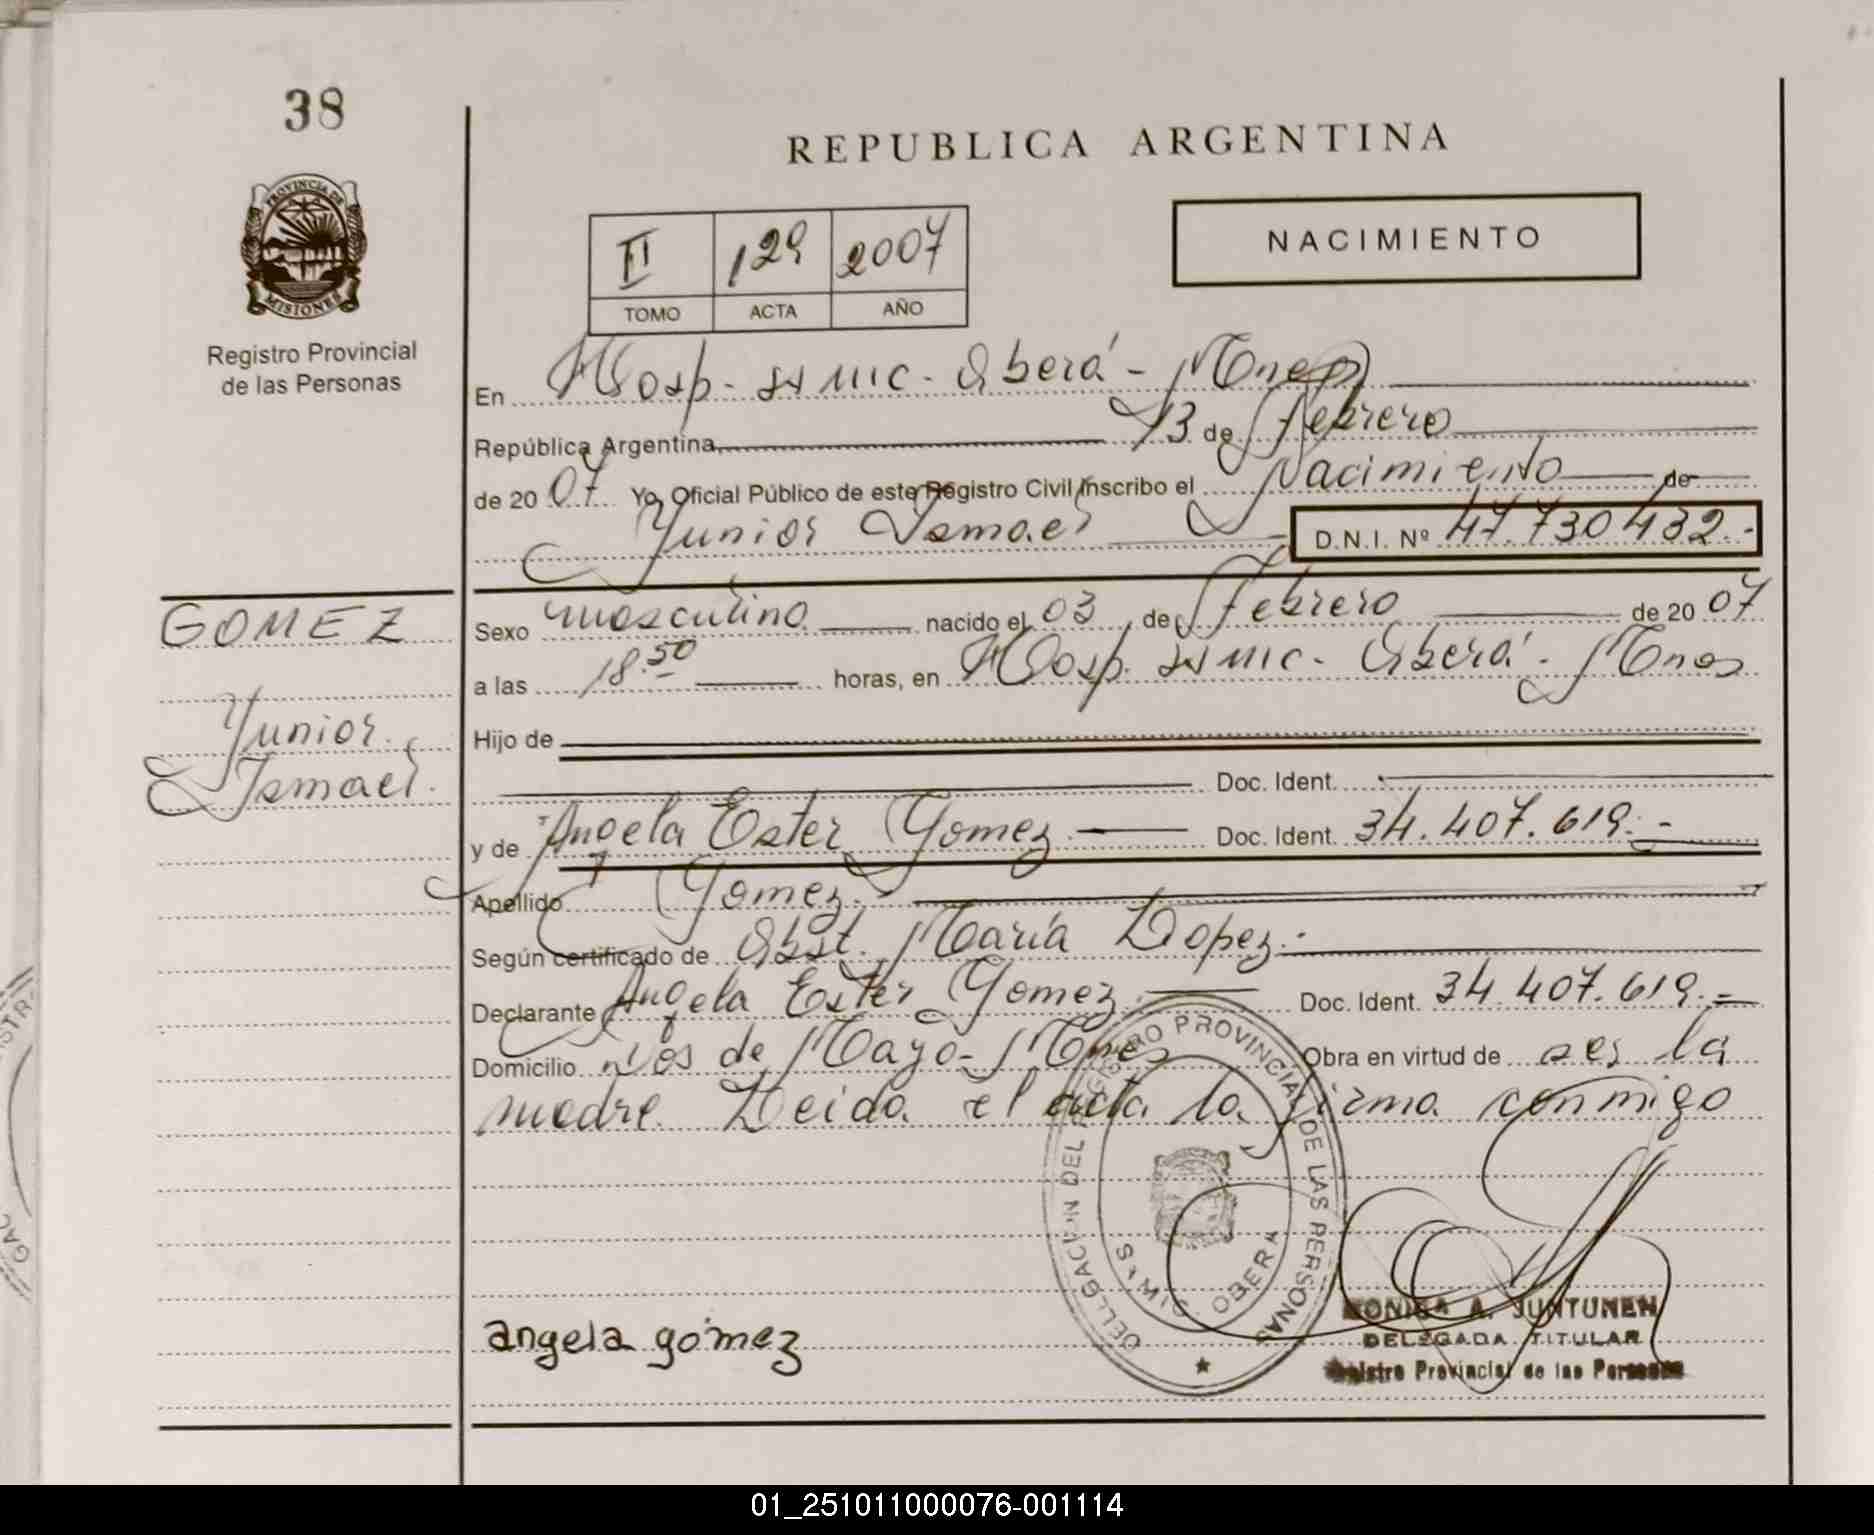 38
REPUBLICA ARGENTINA
PROVINCIA DE
MISIONES
Registro Provincial
de las Personas
NACIMIENTO
II 129 2007
TOMO ACTA AÑO
En Hosp. SAMIC - Oberá - Mnes
República Argentina 13 de Febrero
de 20 07 Yo, Oficial Público de este Registro Civil inscribo el Nacimiento de
Yunior Ismael D.N.I. Nº 47.730.432.-
GOMEZ
Yunior
Ismael.
Sexo masculino nacido el 03 de Febrero de 20 07
a las 18.50 horas, en Hosp. SAMIC - Oberá - Mnes.
Hijo de
Doc. Ident.
y de Angela Ester Gomez Doc. Ident. 34.407.619.-
Apellido Gomez.
Según certificado de Obst. Maria Lopez.-
Declarante Angela Ester Gomez. Doc. Ident. 34.407.619.-
Domicilio de Mayo - Mnes Obra en virtud de ser la
madre. Leida el acta la firma conmigo
DELEGACION DEL REGISTRO PROVINCIAL DE LAS PERSONAS
OBERA
angela gómez
MONICA A. JUNTUNEN
DELEGADA TITULAR
Registro Provincial de las Personas
01_251011000076-001114